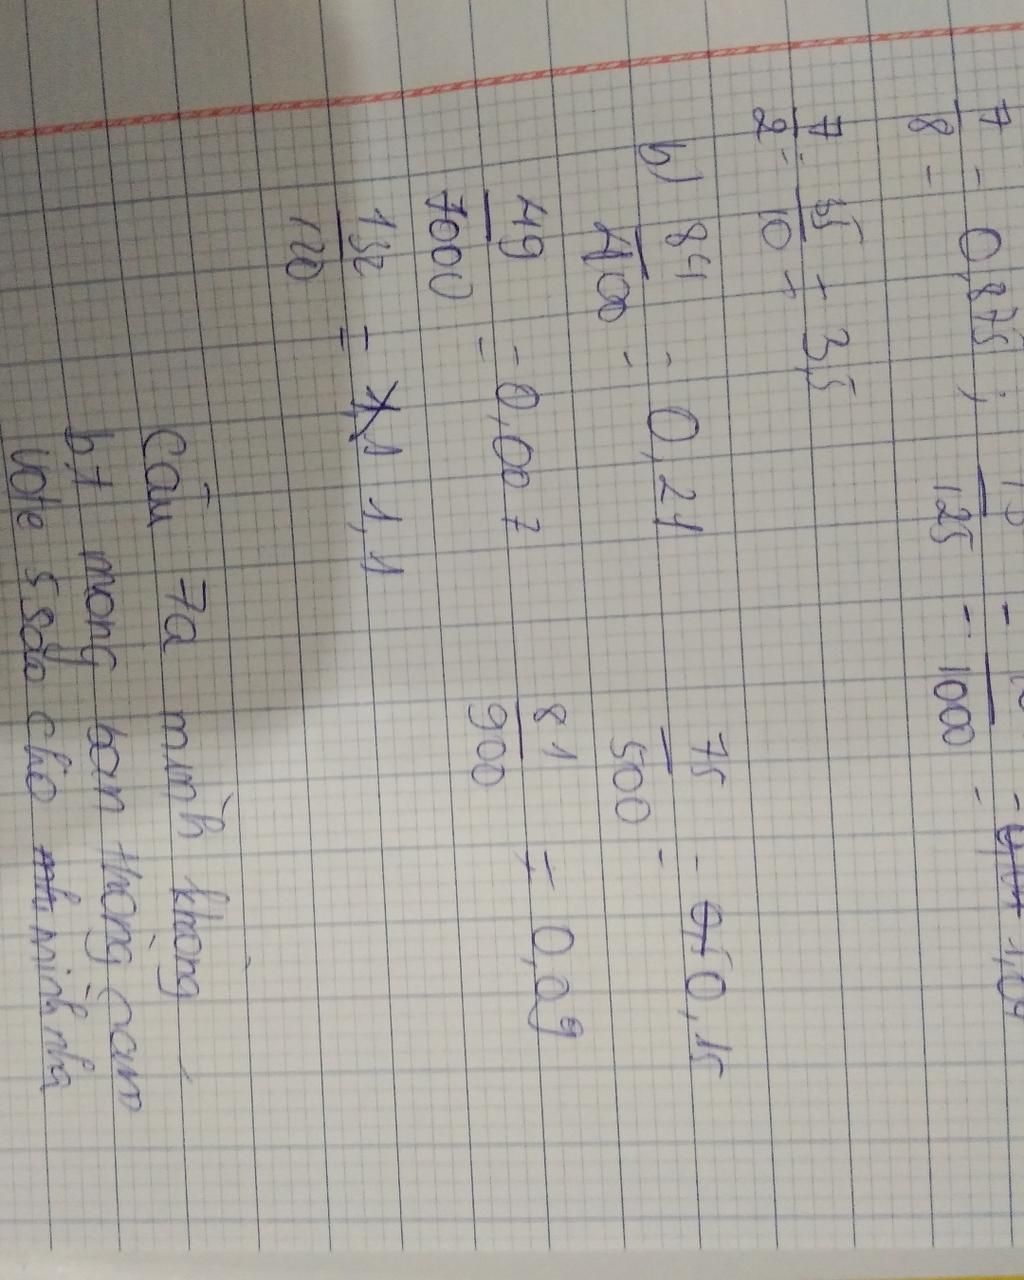 7/8 = 0,875 ; /125 = /1000 = 1,04
7/2 = 35/10 = 3,5
b) 84/400 = 0,21 75/500 = 0,15
49/7000 = 0,007 81/900 = 0,09
132/120 = 1,1
Câu 7a mình không
b,t mong bạn thông cảm
vote 5 sao cho mình nha